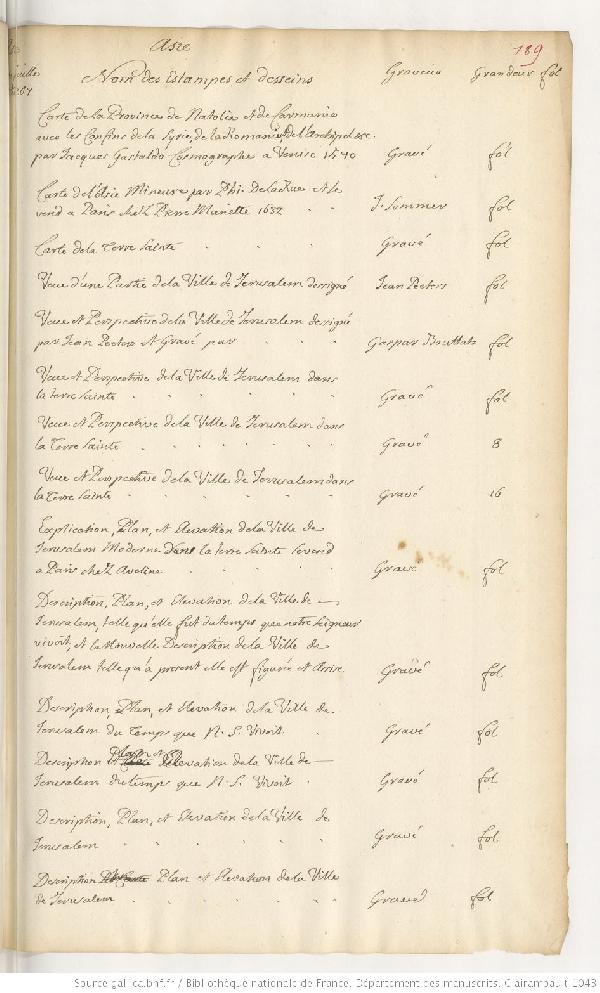 Asie
189
Nom des Estampes et desseins Graveur Grandeur fol
Carte de la Province de Natolie et de Carmanie
avec les Confins de la Syrie, de la Romanie de l'Archipel &c.
par Jacques Gastaldo Cosmographe a Venise 1570 Gravé fol
Carte de l'Asie Mineure par Phi. De la Rue et se
vend a Paris chez Pierre Mariette 1652 J. Sommer fol
Carte de la Terre Sainte Gravé fol
Veue d'une Partie de la Ville de Jerusalem dessigné Jean Peeters fol
Veue et Perspective de la Ville de Jerusalem dessigné
par Jean Peeters et Gravé par Gaspar Bouttats fol
Veue et Perspective de la Ville de Jerusalem dans
la terre Sainte Gravé fol
Veue et Perspective de la Ville de Jerusalem dans
la Terre Sainte Gravé 8
Veue et Perspective de la Ville de Jerusalem dans
la Terre Sainte Gravé 16
Explication, Plan, et Elevation de la Ville de
Jerusalem Moderne Dans la terre Sainte se vend
a Paris chez Aveline Gravé fol
Description, Plan, et Elevation de la Ville de
Jerusalem, telle qu'elle fut du temps que notre Seigneur
vivoit, et la Nouvelle Description de la Ville de
Jerusalem telle qu'à present elle est figurée et Assise Gravé fol
Description, Plan, et Elevation de la Ville de
Jerusalem du Temps que N. S. Vivoit Gravé fol
Description Plan et Elevation de la Ville de
Jerusalem du temps que N. S. Vivoit Gravé fol
Description, Plan, et Elevation de la Ville de
Jerusalem Gravé fol
Description Plan et Elevation de la Ville
de Jerusalem Graved fol
Source gallica.bnf.fr / Bibliothèque nationale de France. Département des manuscrits. Clairambault 1043